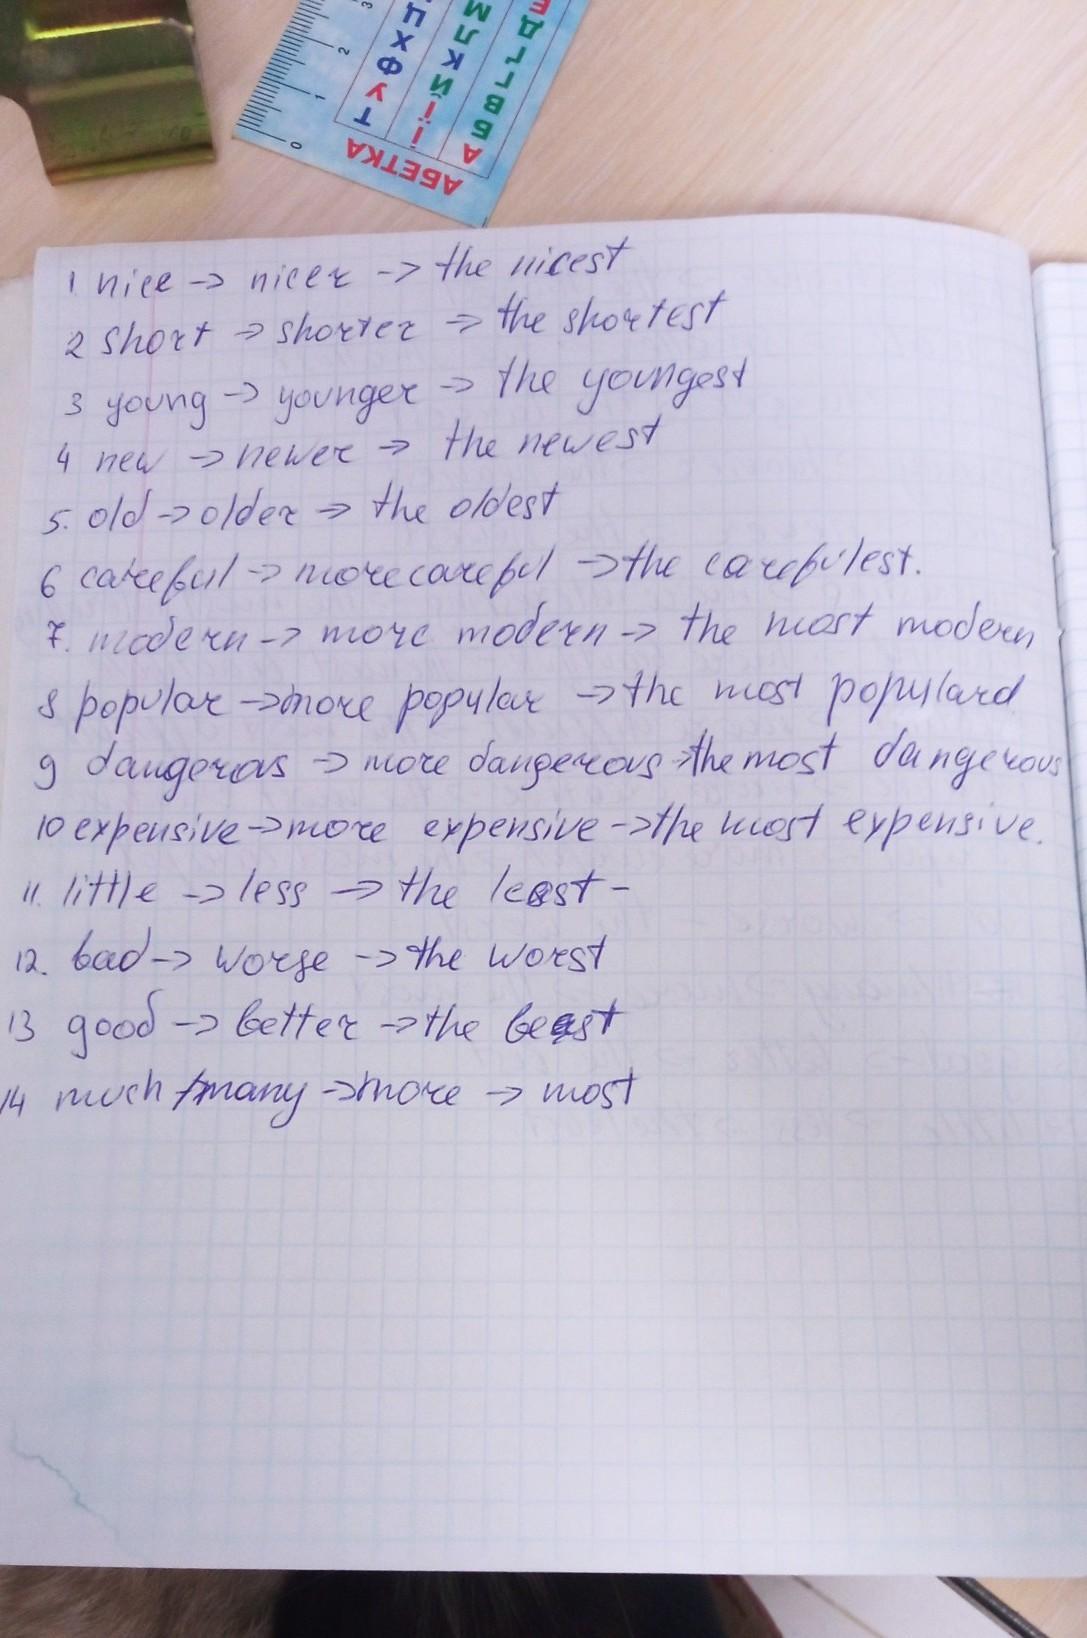 3
2
1
0
Ц Х Ф У Т
М Л К Й Ї І
Е Д Г Ґ В Б А
АБЕТКА
1 nice -> nicer -> the nicest
2 short -> shorter -> the shortest
3 young -> younger -> the youngest
4 new -> newer -> the newest
5. old -> older -> the oldest
6 careful -> more careful -> the carefulest.
7. modern -> more modern -> the most modern
8 popular -> more popular -> the most populard
9 dangerous -> more dangerous -> the most dangerous
10 expensive -> more expensive -> the most expensive.
11. little -> less -> the least -
12. bad -> worse -> the worst
13 good -> better -> the best
14 much/many -> more -> most